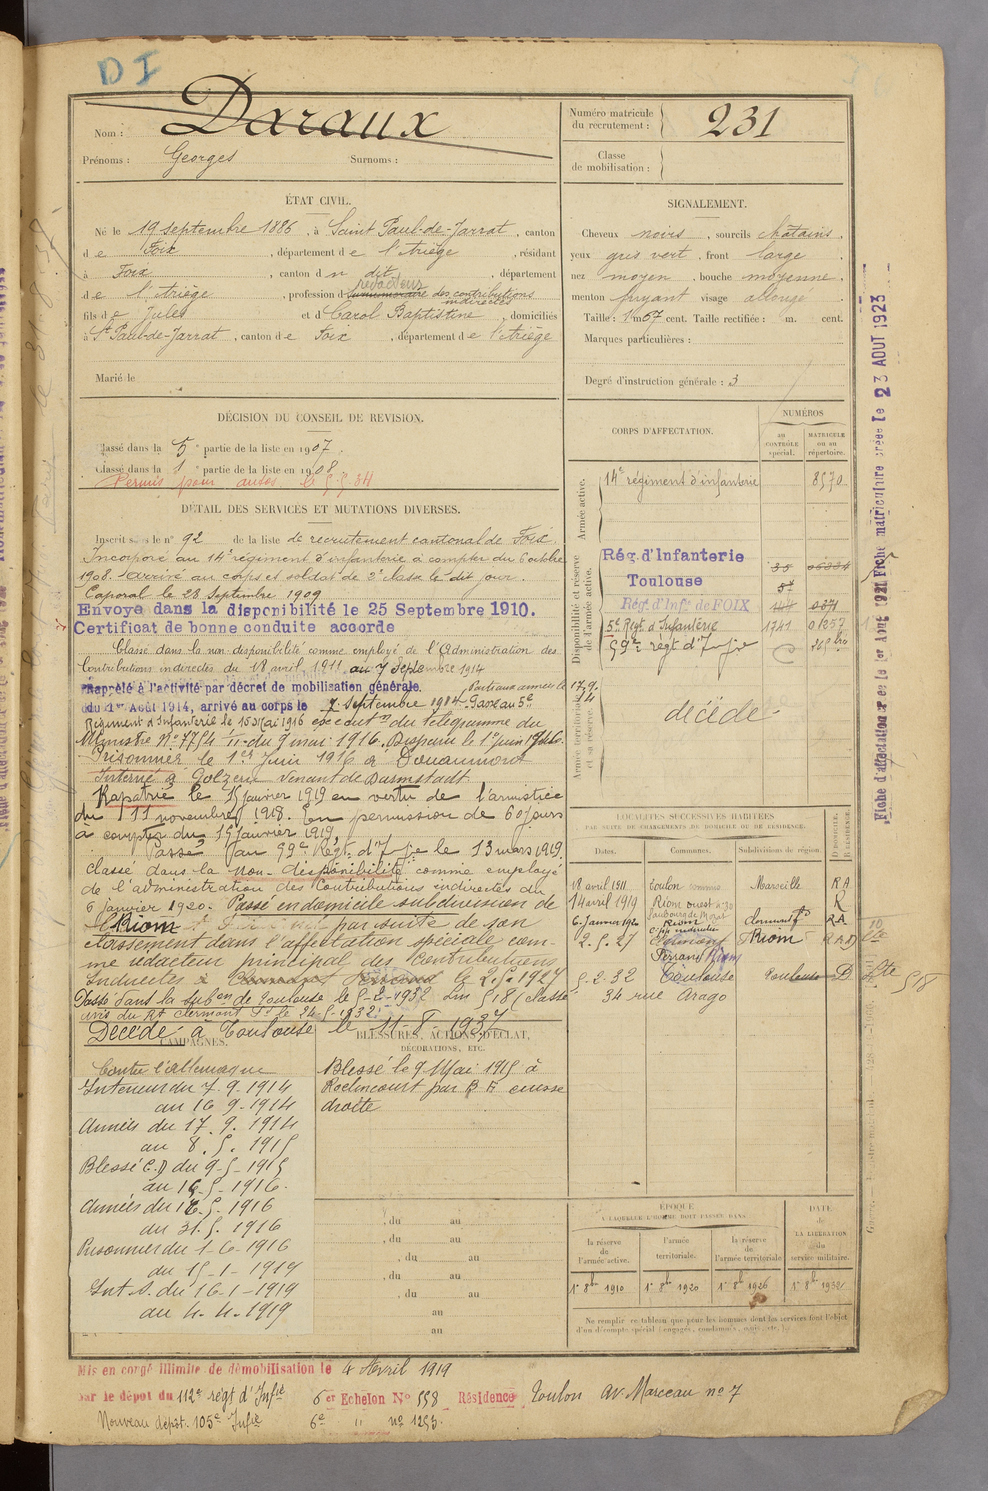 DI
Nom : Daraux
Prénoms : Georges Surnoms :
Numéro matricule du recrutement : 231
Classe de mobilisation :
ÉTAT CIVIL.
Né le 19 septembre 1886, à Saint Paul-de-Jarrat, canton
de Foix, département de l'Ariège, résidant
à Foix, canton du dit, département
de l'Ariège, profession de rédacteur des contributions indirectes
fils de Jules et de Carol Baptistine, domiciliés
à St Paul-de-Jarrat, canton de Foix, département de l'Ariège
Marié le
SIGNALEMENT.
Cheveux noirs, sourcils châtains,
yeux gris vert, front large
nez moyen, bouche moyenne
menton fuyant visage allongé
Taille : 1 m 67 cent. Taille rectifiée : m. cent.
Marques particulières :
Degré d'instruction générale : 3
DÉCISION DU CONSEIL DE REVISION.
Classé dans la 5e partie de la liste en 1907.
Classé dans la 1 partie de la liste en 1908.
Permis pour autos le 5.5.34
DÉTAIL DES SERVICES ET MUTATIONS DIVERSES.
Inscrit sous le n° 92 de la liste de recrutement cantonal de Foix.
Incorporé au 14e régiment d'infanterie à compter du 6 octobre
1908. Arrivé au corps et soldat de 2e classe le dit jour.
Caporal le 28 Septembre 1909
Envoyé dans la disponibilité le 25 Septembre 1910.
Certificat de bonne conduite accordé
Classé dans la non disponibilité comme employé de l'Administration des
Contributions indirectes du 18 avril 1911 au 7 septembre 1914
Rappelé à l'activité par décret de mobilisation générale
du 1er Août 1914, arrivé au corps le 7 Septembre 1914. Parti aux armées le 17.9.14
Passé au 5e
Régiment d'Infanterie le 15 Mai 1916 exécutn du télégramme du
Ministre No 7754 1/11 du 9 mai 1916. Disparu le 1er juin 1916.
Prisonnier le 1er Juin 1916 à Douaumont
Interné à Golzern venant de Darmstadt
Rapatrié le 15 janvier 1919 en vertu de l'armistice
du 11 novembre 1918. En permission de 60 jours
à compter du 15 janvier 1919.
Passé au 99e Régt. d'Infie le 13 mars 1919.
classé dans la non-disponibilité comme employé
de l'administration des Contributions indirectes du
6 janvier 1920. Passé en domicile subdivision de
Riom par suite de son
classement dans l'affectation spéciale com-
me rédacteur principal des Contributions
Indirectes à Clermont Ferrand le 2.5.1927
Passé dans la subon de Toulouse le 5-2-1932
avis du Rt Clermont Fd le 24-5-1932
Décédé à Toulouse le 11-8-1937
CORPS D'AFFECTATION.
NUMÉROS
au CONTRÔLE spécial.
MATRICULE ou au répertoire.
Armée active.
14e régiment d'infanterie 8570
Disponibilité et réserve de l'armée active.
Rég. d'Infanterie
Toulouse
Régt d'Infie de FOIX
5e Régt d'Infanterie 1741 01257
99e régt d'Infie
Armée territoriale et sa réserve.
décédé
LOCALITÉS SUCCESSIVES HABITÉES
PAR SUITE DE CHANGEMENTS DE DOMICILE OU DE RÉSIDENCE.
Dates. Communes. Subdivisions de région. D. DOMICILE. R. RÉSIDENCE.
18 avril 1911 Toulon Marseille RA
14 avril 1919 Riom ouest n° 30 R
Faubourg de Mozat
6 Janvier 1920 Riom Clermont Fd RA
2.5.27 Clermont Ferrand Riom
5-2-32 Toulouse Toulouse D
34 rue Arago
518
CAMPAGNES.
Contre l'Allemagne
Intérieur du 7.9.1914
au 16.9.1914
Armées du 17.9.1914
au 8.5.1915
Blessé C.D du 9-5-1915
au 15-5-1916.
Armées du 16.5.1916
au 31.5.1916
Prisonnier du 1-6-1916
au 15-1-1919
Int. S. du 16-1-1919
au 4.4.1919
BLESSURES, ACTIONS D'ÉCLAT,
DÉCORATIONS, ETC.
Blessé le 9 Mai 1915 à
Roclincourt par B F cuisse
droite
, du au
, du au
, du au
, du au
, du au
au
au
ÉPOQUE
À LAQUELLE L'HOMME DOIT PASSER DANS
la réserve de l'armée active.
l'armée territoriale.
la réserve de l'armée territoriale
DATE de LA LIBÉRATION du service militaire.
1er 8bre 1910
1er 8bre 1920
1er 8bre 1926
1er 8bre 1932
Ne remplir ce tableau que pour les hommes dont les services font l'objet
d'un décompte spécial (engagés, condamnés, omis, etc.).
Mis en congé illimité de démobilisation le 4 Avril 1919
par le dépôt du 112e régt d'Infie 6er Echelon No 558 Résidence Toulon Av. Marceau no 7
Nouveau dépôt. 105e Infie 6e " no 1253.
Fiche d'affectation créée le 1er Aout 1921
Fiche matriculaire créée Le 23 AOUT 1923